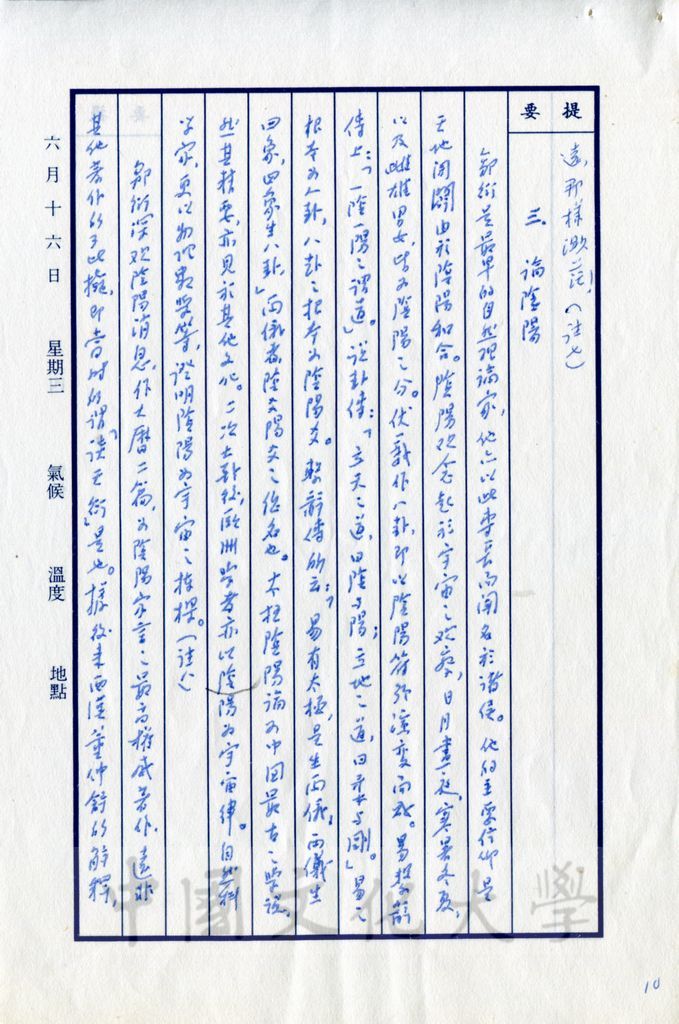 提要
遠那樣激茫!(註七)
三、論陰陽
鄒衍是最早的自然理論家,他亦以此專長而聞名於諸侯。他的主要信仰是
天地開闢由於陰陽和合。陰陽观念起於宇宙之观察,日月晝夜,寒暑冬夏,
以及雌雄男女,皆为陰陽之分。伏羲作八卦,即以陰陽符號演變而成。易繫辭
傳上:「一陰一陽之謂道。」說卦傳:「立天之道,曰陰与陽;立地之道,曰柔与剛。」易之
根本为八卦,八卦之根本为陰陽爻。繫辭傳所云:「易有太極,是生兩儀,兩儀生
四象,四象生八卦,」兩儀者,陰爻陽爻之總名也。太極陰陽論为中国最古之學說,
然其精要,亦見於其他文化。二次大戰後,歐洲學者亦以陰陽为宇宙律。自然科
学家,更以物理數學等,證明陰陽为宇宙之樞。(註八)
鄒衍深观陰陽消息,作大曆二篇,为陰陽家言之最高權威著作,遠非
其他著作所可比擬,即當時所謂「談天衍」是也。據後來西漢董仲舒的解釋,
六月十六日 星期三 氣候 溫度 地點
中國文化大學
10